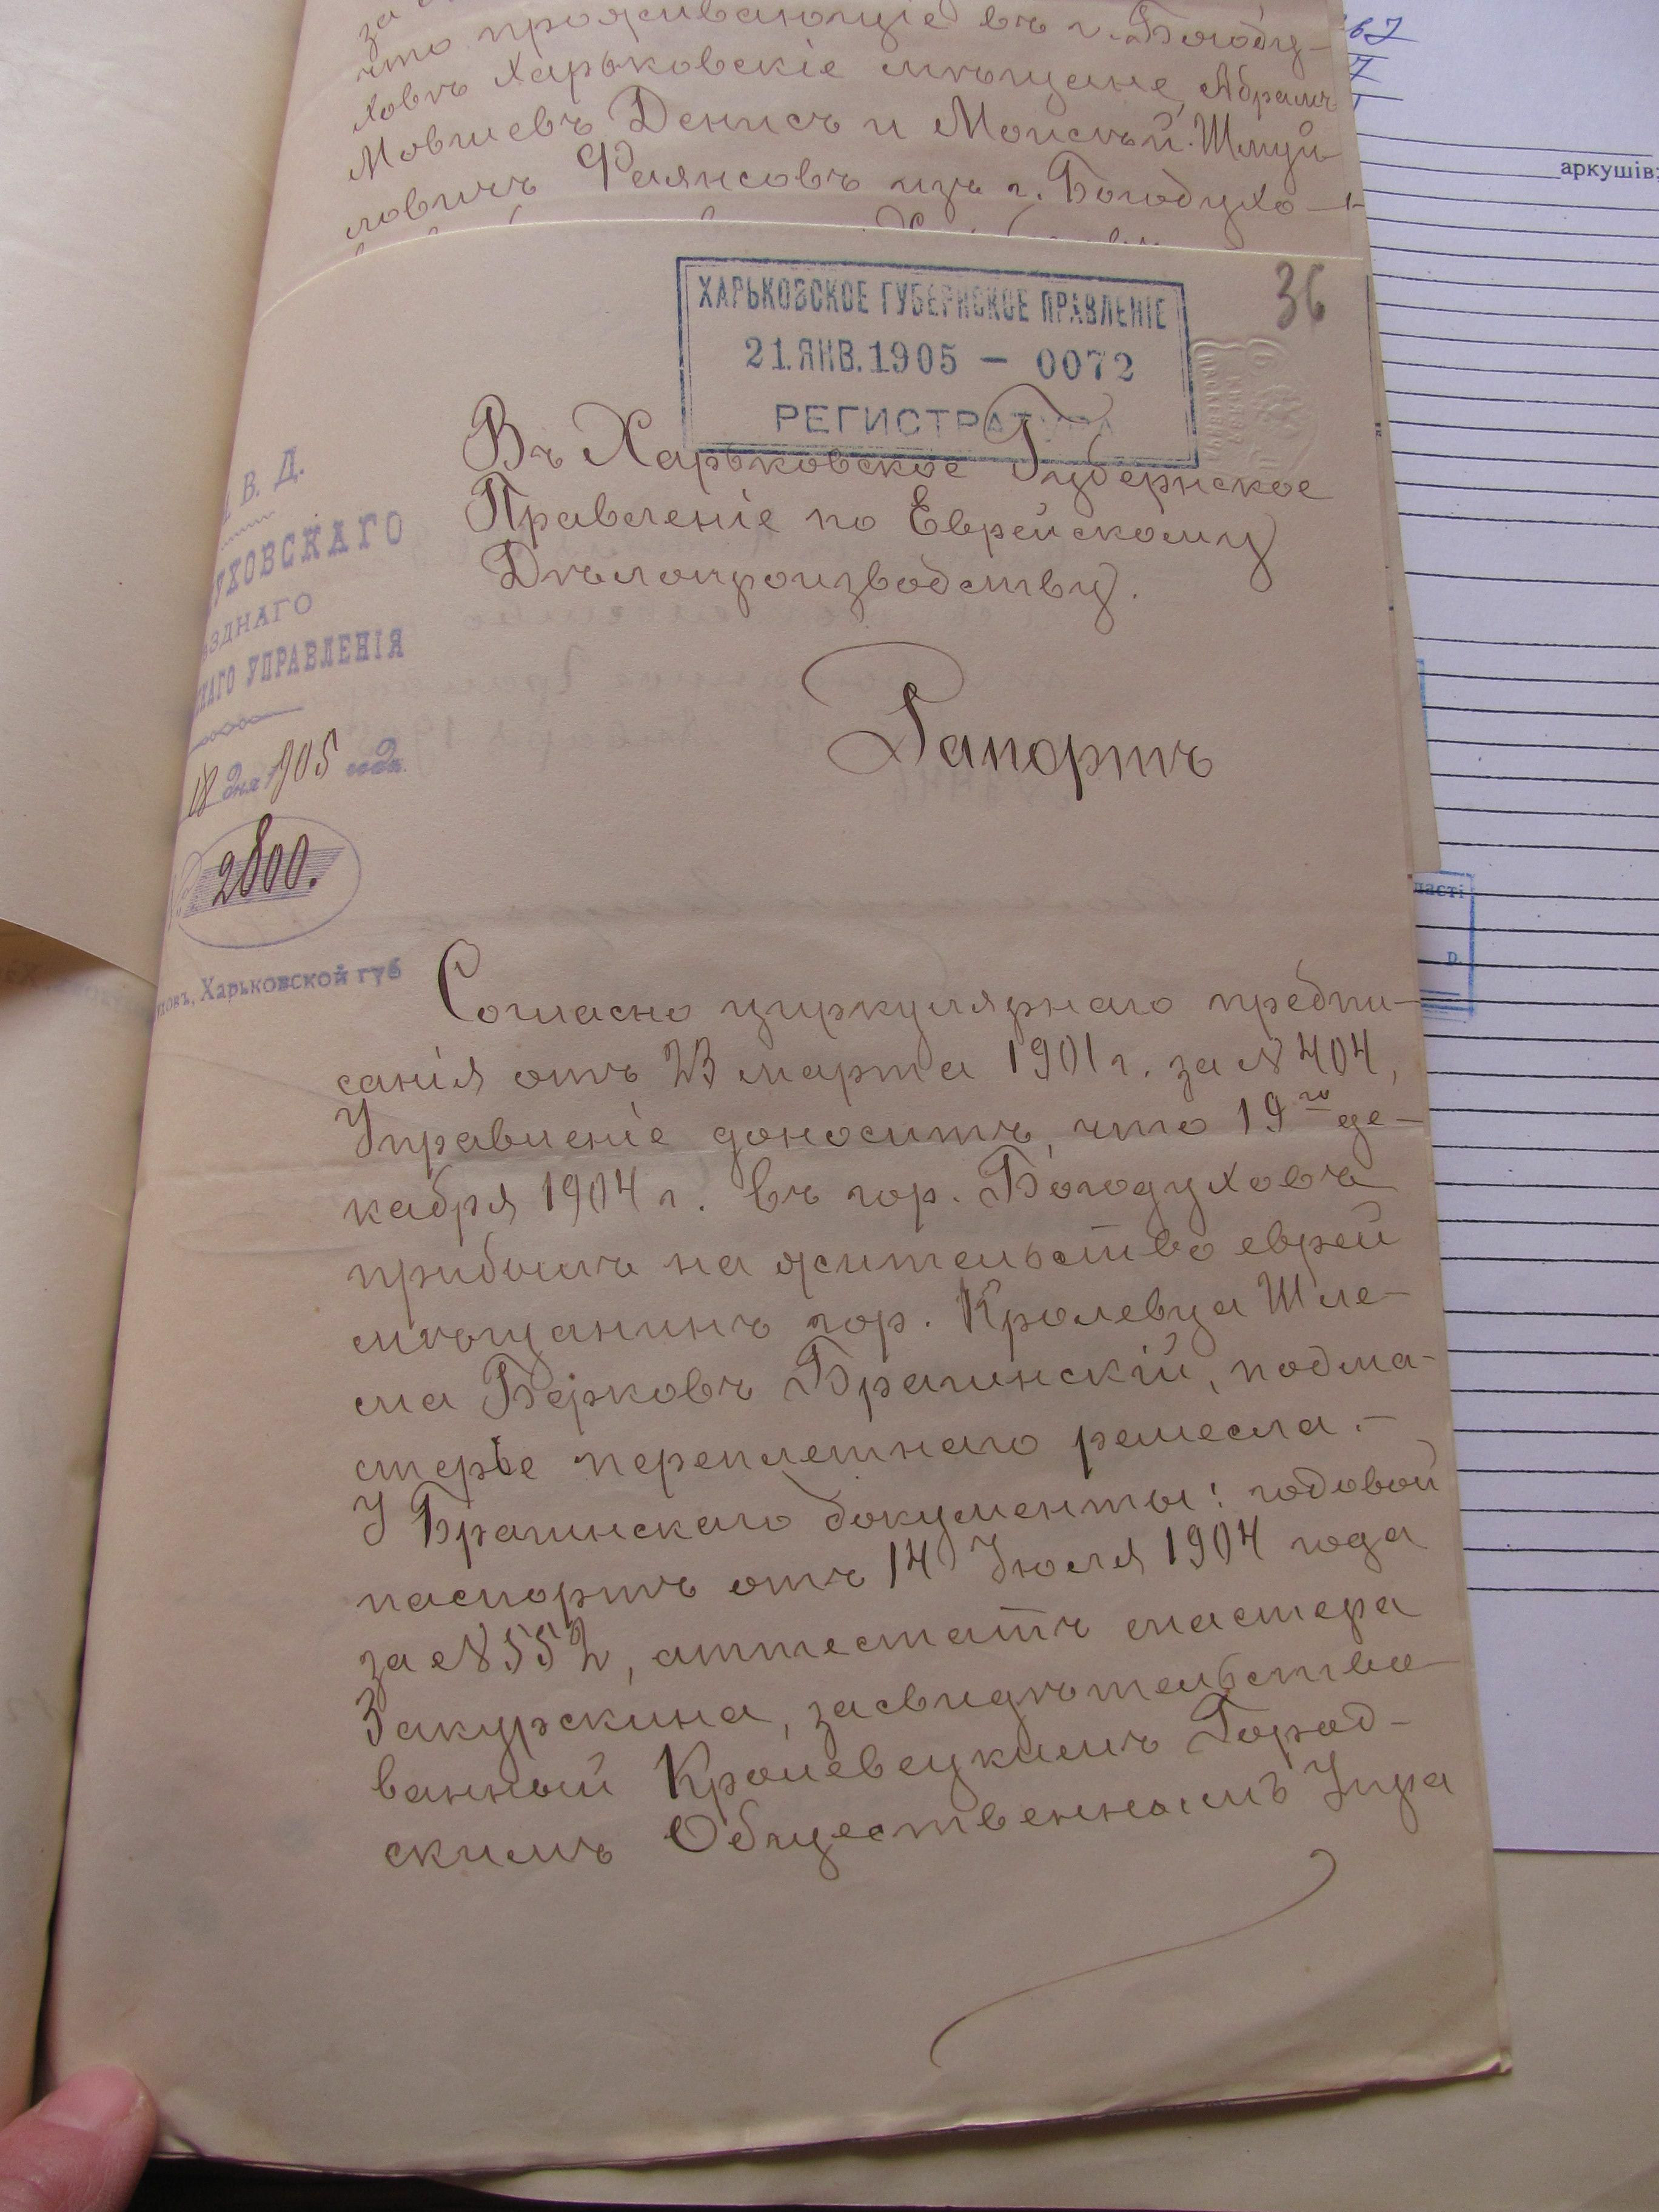 что проживающіе въ г. Богоду-
ховѣ Харьковскіе мѣщане, Абрамъ
Мовшевъ Денисъ и Моисѣй Шмуй-
ловичъ Фаянсовъ изъ г. Богодухо-
67
7
аркушів:
36
ХАРЬКОВСКОЕ ГУБЕРНСКОЕ ПРАВЛЕНІЕ
21.ЯНВ.1905 — 0072
РЕГИСТРАТУРА
Въ Харьковское Губернское
Правленіе по Еврейскому
Дѣлопроизводству.
В. Д.
УХОВСКАГО
ѢЗДНАГО
СКАГО УПРАВЛЕНІЯ
18 дня 1905 года.
№ 2800.
ховъ, Харьковской губ
Рапортъ
ласті
р.
Согласно циркулярнаго предпи-
санія отъ 23 марта 1901 г. за № 404,
Управленіе доноситъ, что 19го де-
кабря 1904 г. въ гор. Богодуховъ
прибылъ на жительство еврей
мѣщанинъ гор. Кролевца Шле-
ма Берковъ Брагинскій, подма-
стерье переплетнаго ремесла.—
У Брагинскаго документы: годовой
паспортъ отъ 14 Іюля 1904 года
за № 552, аттестатъ мастера
Закурскина, засвидѣтельство-
ванный Кролевецкимъ Город-
скимъ Общественнымъ Упра